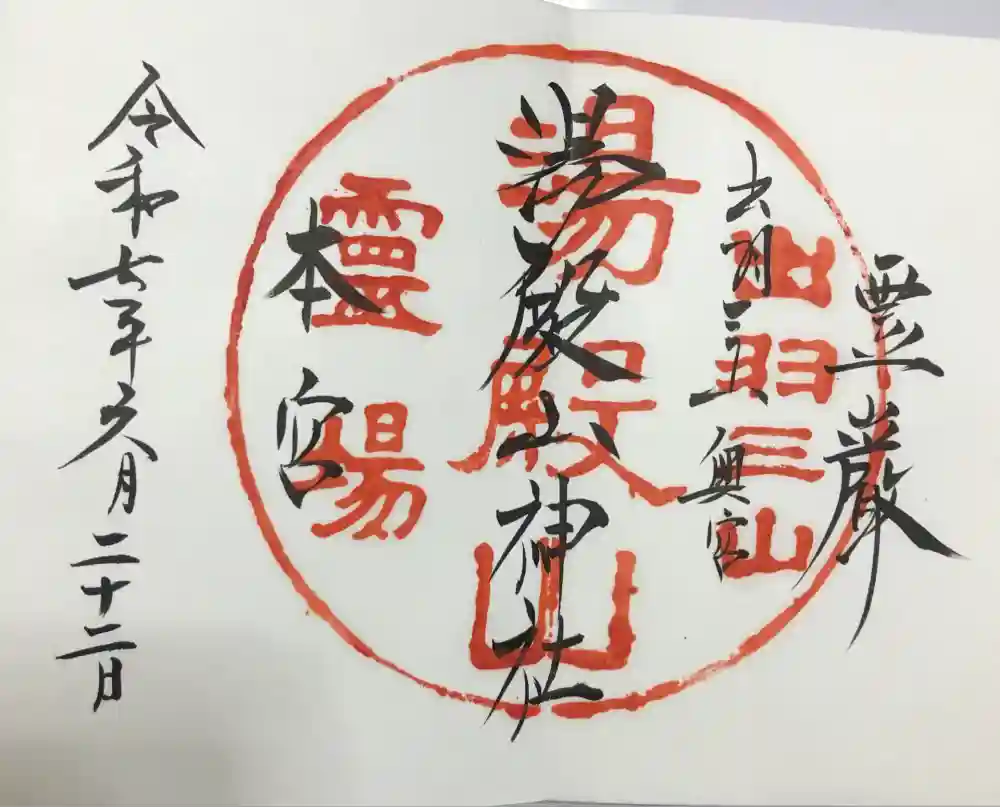 霊巌
出羽三山奥宮
出羽三山
湯殿山神社
湯殿山
本宮
靈場
令和七年六月二十二日